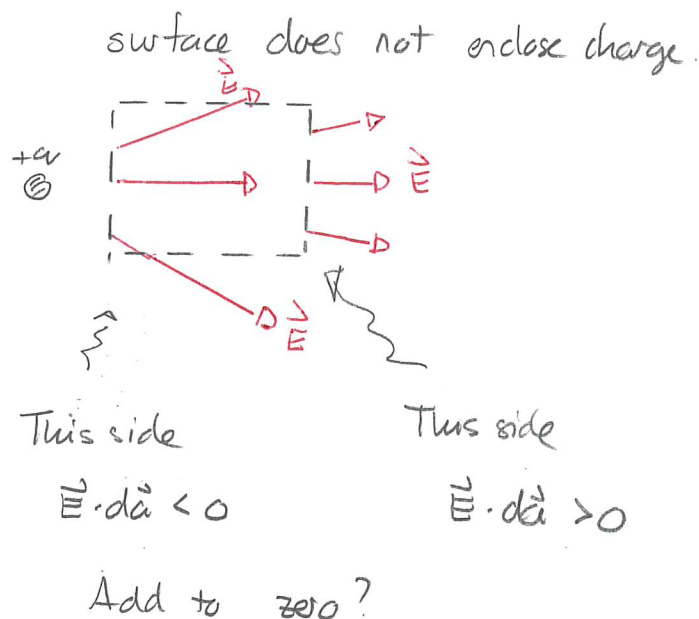 surface does not enclose charge.
E⃗
+q
E⃗
E⃗
This side This side
E⃗·da⃗ < 0 E⃗·da⃗ > 0
Add to zero?